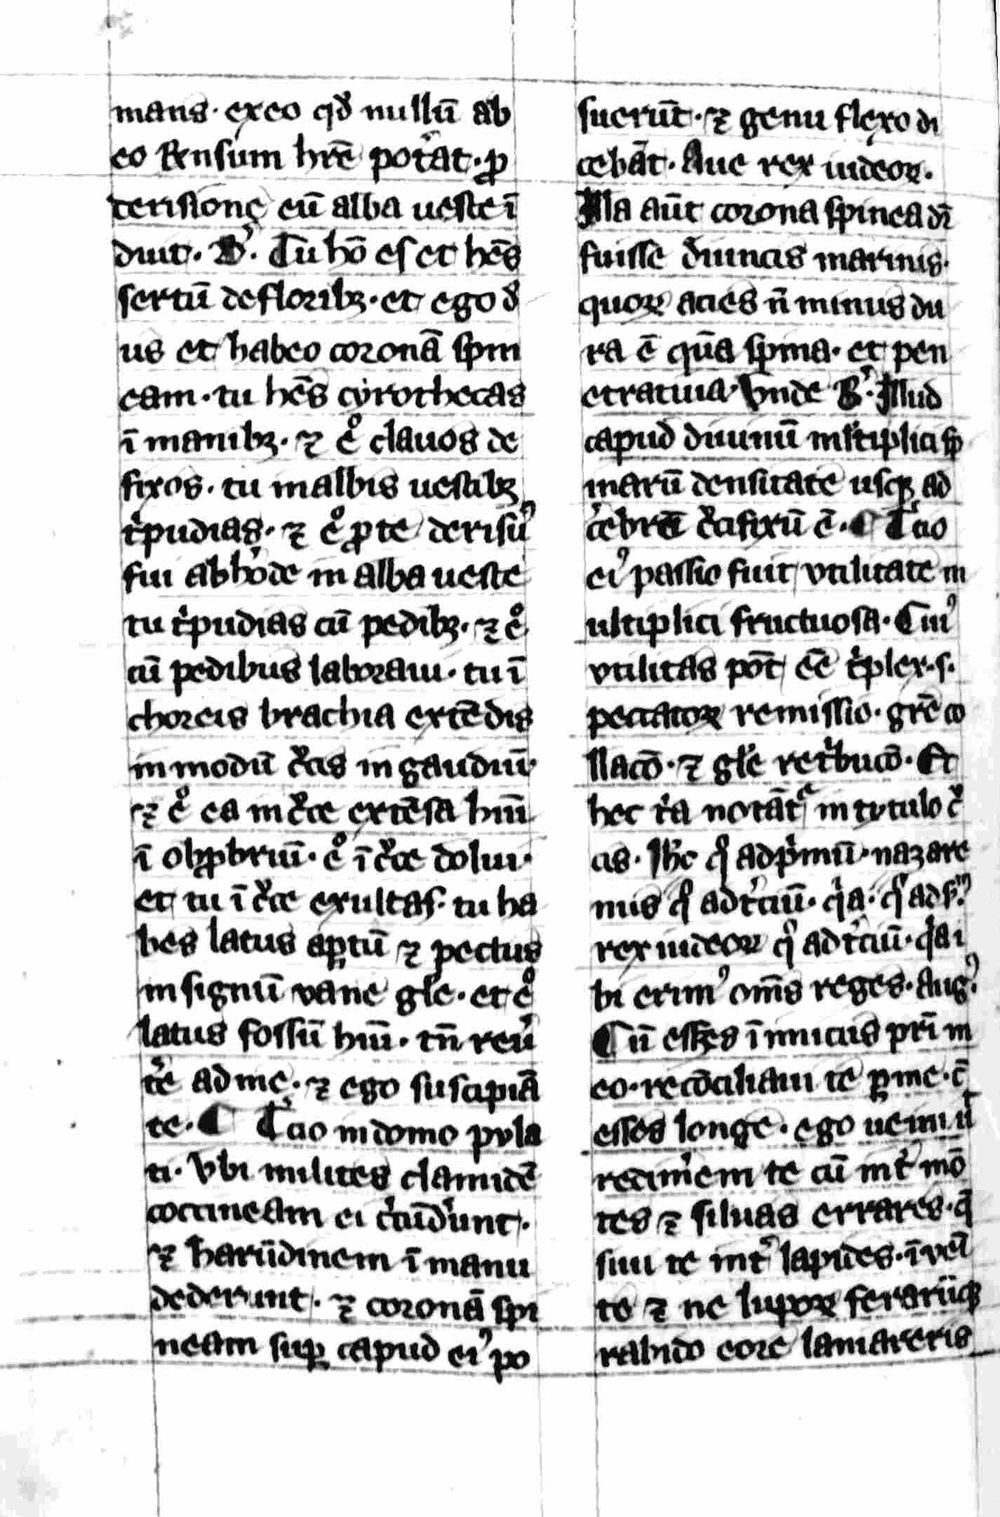 mans · exeo qd̄ nullū ab
eo sensum hr̄e potāt · ꝓ
derisionē eū alba ueste ī
duit · B᷒ · Tu hō es et hēs
sertū de floribꝫ · et ego d̄
us et habeo coronā spin
eam · tu hēs cyrothecas
ī manibꝫ · ⁊ eͦ clauos de
fixos · tu in albis uestibꝫ
tͥpudias · ⁊ eͦ ꝓ te derisꝰ
fui ab hͦode in alba ueste
tu tͥpudias cū pedibꝫ · ⁊ eͦ
cū pedibus laboraui · tu ī
choreis brachia extēdis
in modū cͬcis in gaudiū ·
⁊ eͦ ea in cͬce extēsa hui
ī obꝓbriū · eͦ ī cͬce dolui ·
et tu ī cͬce exultas · tu ha
bes latus aꝑtū ⁊ pectus
in signū vane gl̄e · et eͦ
latus fossū hui · tn̄ reuͬ
tͬe ad me · ⁊ ego suscipiā
te · ¶ Tͨio in domo pyla
ti · Vbi milites clamidē
coccineam ei cͬcūdͬunt ·
⁊ harūdinem ī manu
dederunt · ⁊ coronā spi
neam suꝑ capud eiꝰ po
suerūt · ⁊ genu flexo di
cebāt · Aue rex iudeoꝝ ·
Illa aūt corona spinea dī
fuisse d̄ iuncis marinis ·
quoꝝ acies n̄ minus du
ra ē qͣ̄ spina · et pen
etratiua · Vnde B᷒ · Illud
capud diuinū ml̄tiplici sp
inarū densitate usqꝫ ad
cͬebrū cͦ̄fixū ē · ¶ Tͨio
eiꝰ passio fuit vtilitate m
ultiplici fructuosa · Cuiꝰ
vtilitas pōt eē tͥplex · s ·
peccatoꝝ remissio · gr̄e co
llacō · ⁊ gl̄e retͥbucō · Et
hec tͥa notātᷣ in tytulo cͬ
cis · Ih̄c qͦ ad pͥmū · nazare
nus qͦ ad tͬciū · qͥa · qͦ ad s̄ꝫ
rex iudeoꝝ qͦ ad tͬciū · qͥa i
bi erimꝰ om̄s reges · Augꝰ
Cū esses īimicus prī m
eo · recōciliaui te ꝑ me · cū
esses longe · ego ueni ut
redimͬem te cū intͬ mō
tes ⁊ siluas errares · q̄
siui te intͬ lapides · ī uel
te ⁊ ne lupoꝝ ferarūqꝫ
rabido eore laniareris